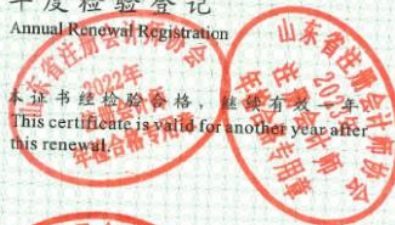 年度检验登记
Annual Renewal Registration
本证书经检验合格，继续有效一年
This certificate is valid for another year after
this renewal.
山东省注册会计师协会
2022年
注册会计师
年检合格专用章
山东省注册会计师协会
2023年
注册会计师
年检合格专用章